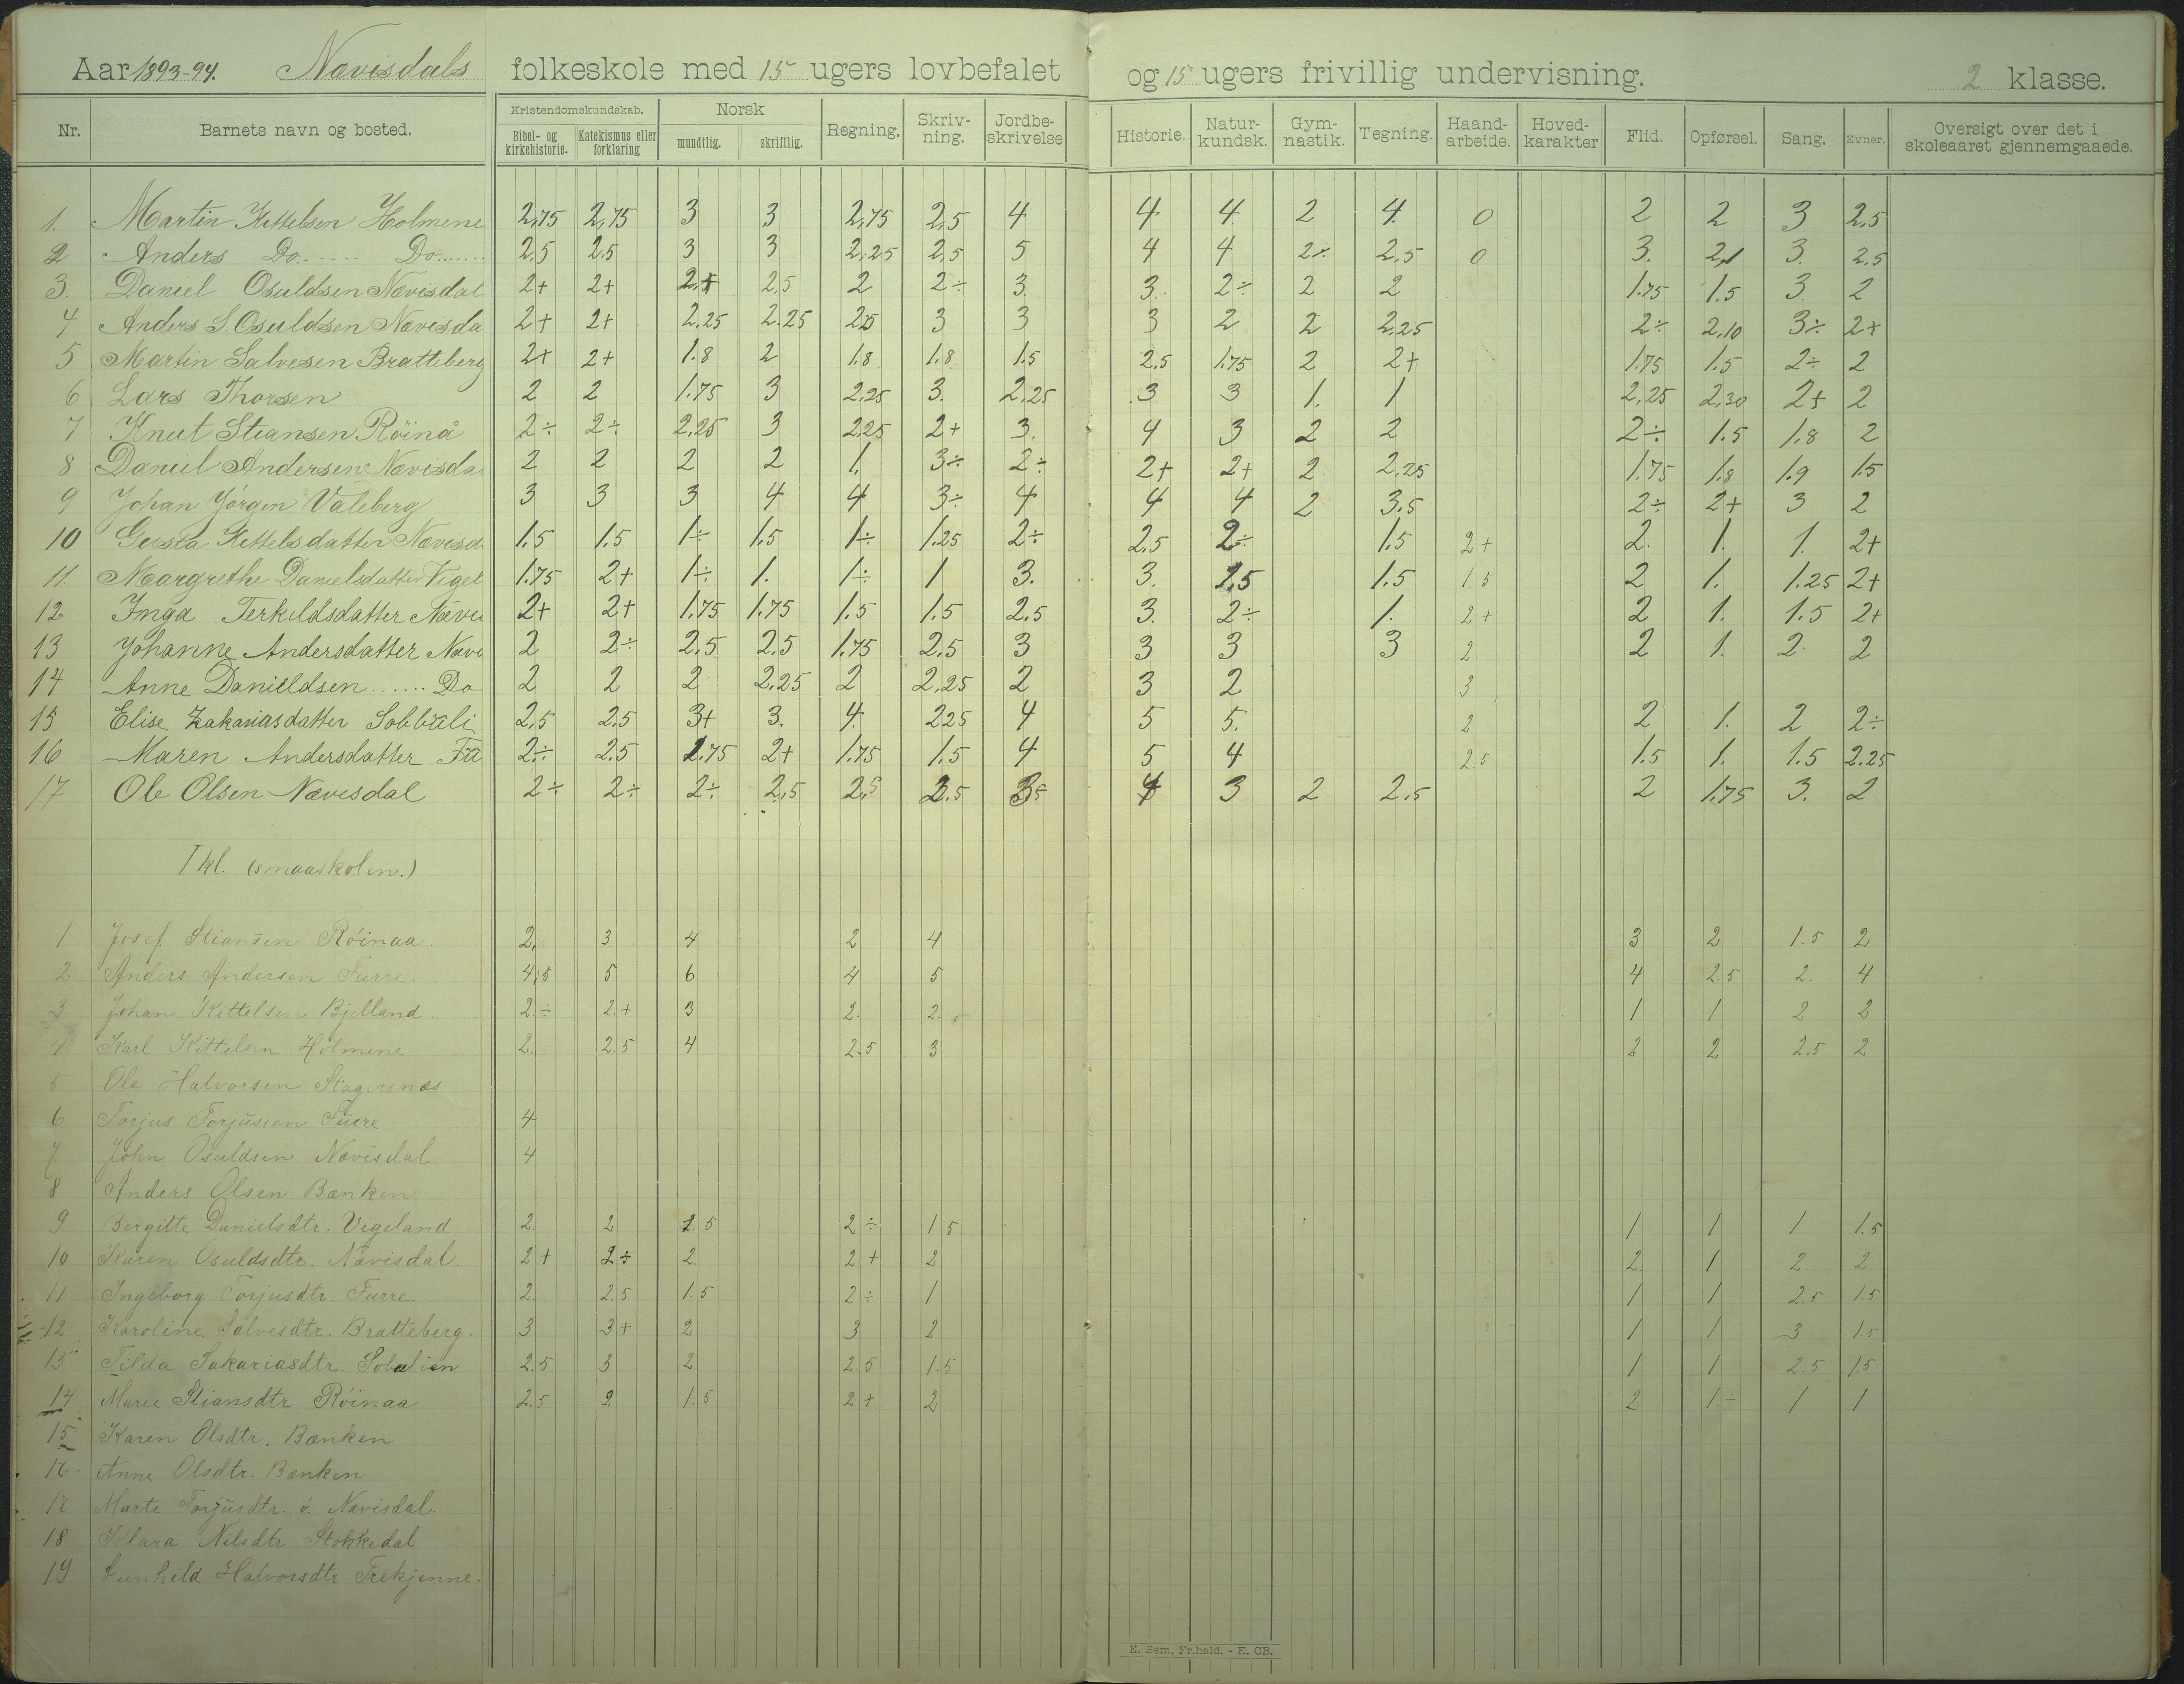 Aar 1893-94. Nævisdals folkeskole med 15 ugers lovbefalet og 15 ugers frivillig undervisning. 2 klasse.
Nr. Barnets navn og bosted. Kristendomskundskab. Norsk Regning. Skriv-ning. Jordbe-skrivelse Historie. Natur-kundsk. Gym-nastik. Tegning. Haand-arbeide. Hoved-karakter Flid. Opførsel. Sang. Evner. Oversigt over det i skoleaaret gjennemgaaede.
Bibel- og kirkehistorie. Katekismus eller forklaring mundtlig. skriftlig.
1. Martin Kettelsen Holmene 2,75 2,75 3 3 2,75 2,5 4 4 4 2 4 0 2 2 3 2,5
2 Anders Do. Do 2,5 2,5 3 3 2,25 2,5 5 4 4 2÷ 2,5 0 3. 2,1 3. 2,5
3. Daniel Osuldsen Nævisdal 2+ 2+ 2,5 2 2÷ 3. 3. 2÷ 2 2 1.75 1.5 3 2
4 Anders S. Osuldsen Nævisda 2+ 2+ 2,25 2.25 2,5 3 3 3 2 2 2,25 2÷ 2,10 3÷ 2+
5 Martin Salvesen Bratteberg 2+ 2+ 1.8 2 1.8 1.8 1.5 2.5 1.75 2 2+ 1.75 1.5 2÷ 2
6 Lars Thorsen 2 2 1.75 3 2,25 3. 2,25 3 3 1. 1 2,25 2,30 2+ 2
7 Knut Stiansen Röinå 2÷ 2÷ 2,25 3 2,25 2+ 3. 4 3 2 2 2÷ 1.5 1.8 2
8 Daniel Andersen Nævisda 2 2 2 2 1. 3÷ 2÷ 2+ 2+ 2 2,25 1.75 1.8 1.9 1.5
9 Johan Jörgen Valeberg 3 3 3 4 4 3÷ 4 4 4 2 3.5 2÷ 2+ 3 2
10 Kettelsdatter Nævisd 1.5 1.5 1÷ 1.5 1÷ 1.25 2÷ 2.5 2÷ 1.5 2+ 2. 1. 1. 2+
11. Margrethe Danielsdatter Vigel 1.75 2+ 1÷ 1. 1÷ 1 3. 3. 2,5 1.5 1.5 2 1. 1.25 2+
12 Inga Terkildsdatter Nævi 2+ 2+ 1.75 1.75 1.5 1.5 2,5 3. 2÷ 1. 2+ 2 1. 1.5 2+
13 Johanne Andersdatter Nævi 2 2÷ 2,5 2,5 1.75 2,5 3 3 3 3 2 2 1. 2 2
14 Anne Danieldsen Do 2 2 2 2,25 2 2,25 2 3 2 3
15 Elise Zakariasdatter Sobbuli 2,5 2,5 3+ 3. 4. 2,25 4 5 5. 2 2 1. 2 2÷
16 Maren Andersdatter Fu 2÷ 2.5 1.75 2+ 1.75 1.5 4 5 4 2.5 1.5 1. 1.5 2.25
17 Ole Olsen Nævisdal 2÷ 2÷ 2÷ 2,5 2,5 2.5 3.5 4 3 2 2.5 2 1.75 3. 2
I kl. (smaaskolen.)
1 Josef Stiansen Röinaa. 2, 3 4 2 4 3 2 1.5 2
2 Anders Andersen Furre. 4,5 5 6 4 5 4 2.5 2. 4
3 Johan Kittelsen Bjelland. 2÷ 2.+ 3 2. 2. 1 1 2 2
4 Karl Kittelsen Holmene 2. 2.5 4 2.5 3 2 2 2.5 2
5 Ole Halvorsen Stagersnæs
6 Torjus Torjussen Furre 4
7 John Osuldsen Nævisdal 4
8 Anders Olsen Bænken
9 Bergitte Danielsdtr. Vigeland 2. 2 1.5 2÷ 1.5 1 1 1 1.5
10 Karen Osuldsdtr. Nævisdal. 2+ 2÷ 2. 2+ 2 2. 1 2. 2
11 Ingeborg Torjusdtr. Furre. 2. 2.5 1.5 2÷ 1 1 1 2.5 1.5
12 Karoline Salvesdtr. Bratteberg. 3 3+ 2 3 2 1 1 3 1.5
13 Tilda Sakariasdtr. Sobulien 2.5 3 2 2.5 1.5 1 1 2.5 1.5
14 Marie Stiansdtr Röinaa 2.5 2 1.5 2+ 2 2 1.÷ 1 1
15 Karen Olsdtr. Bænken
16 Anne Olsdtr. Bænken
17 Marte Torjusdtr. ö. Nævisdal.
18 Klara Nilsdtr Stokkedal
19 Gunhild Halvorsdtr Trekjenne.
E. Sem. Fr.hald. - E. CB.